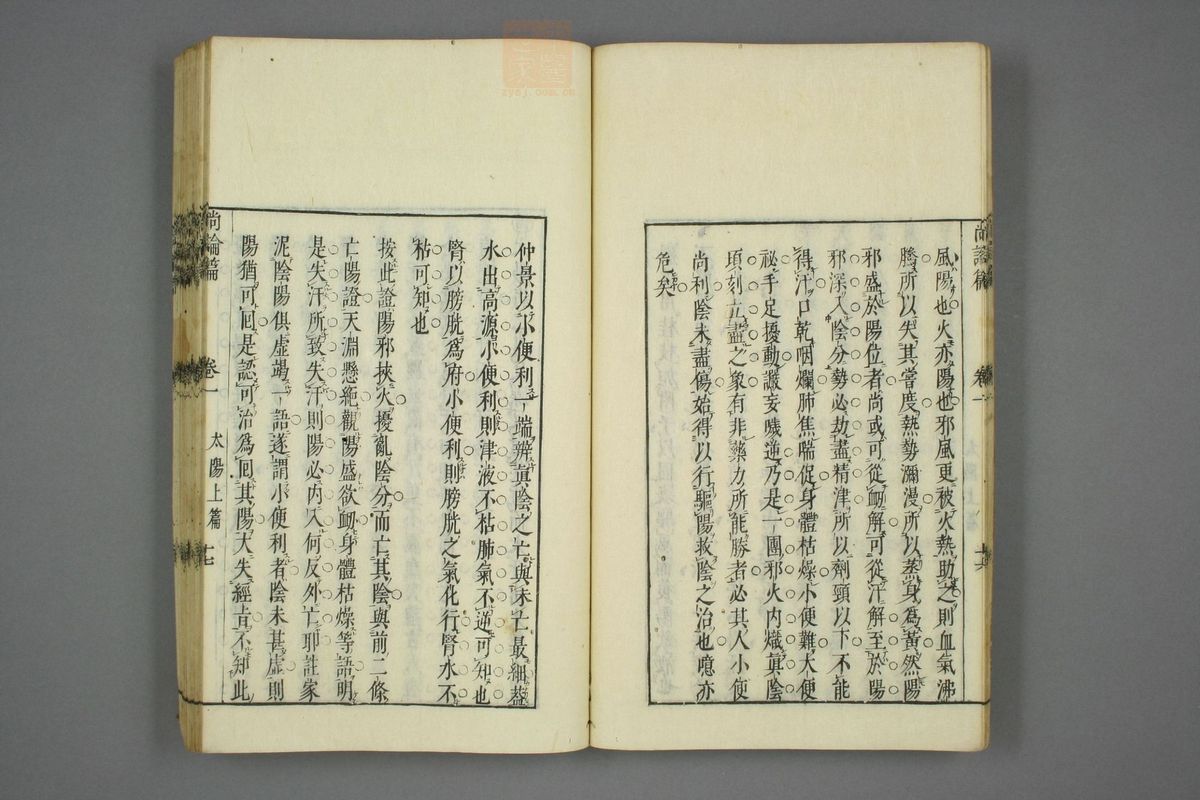 風陽也火亦陽也邪風更被火熱助之則血氣沸
騰所以失其嘗度熱勢瀰漫所以蒸身為黃然陽
邪盛於陽位者尚或可從衂解可從汗解至於陽
邪深入陰分勢必劫盡精津所以劑頸以下不能
得汗口乾咽爛肺焦喘促身體枯燥小便難大便
祕手足擾動讝妄噦逆乃是一團邪火內熾真陰
頃刻立盡之象有非藥力所能勝者必其人小便
尚利陰未盡傷始得以行驅陽救陰之治也噫亦
危矣
尚論篇
卷一
太陽上篇
十七
仲景以小便利一端辨真陰之亡與未亡最細葢
水出高源小便利則津液不枯肺氣不逆可知也
腎以膀胱為府小便利則膀胱之氣化行腎水不
枯可知也
按此證陽邪挾火擾亂陰分而亡其陰與前二條
亡陽證天淵懸絶觀陽盛欲衂身體枯燥等語明
是失汗所致失汗則陽必內入何反外亡耶註家
泥陰陽俱虛竭一語遂謂小便利者陰未甚虛則
陽猶可囘是認可治為囘其陽大失經旨不知此
尚論篇
卷一
太陽上篇
十七
zysj.com.cn